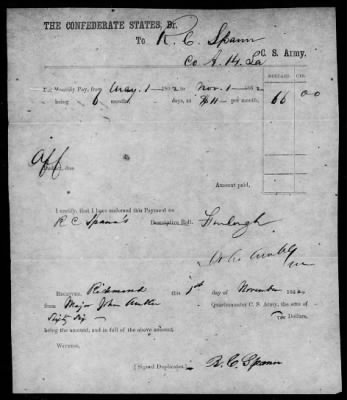 THE CONFEDERATE STATES, Dr.
To R. C. Spann
Co A. 14. La C. S. Army.
DOLLARS. CTS.
For Monthly Pay, from May 1 — 1862 to Nov. 1 — 1862
being 6 months days, at $11 — per month, 66 00
Aff
Deduct, due
Amount paid,
I certify, that I have endorsed this Payment on
R C Spann's Descriptive Roll. Furlough
Received, Richmond this 1st day of November 186
from Major John Ambler Quartermaster C. S. Army, the sum of
Sixty Six — Dollars,
being the amount, and in full of the above account.
Witness,
(Signed Duplicates) R. C. Spann